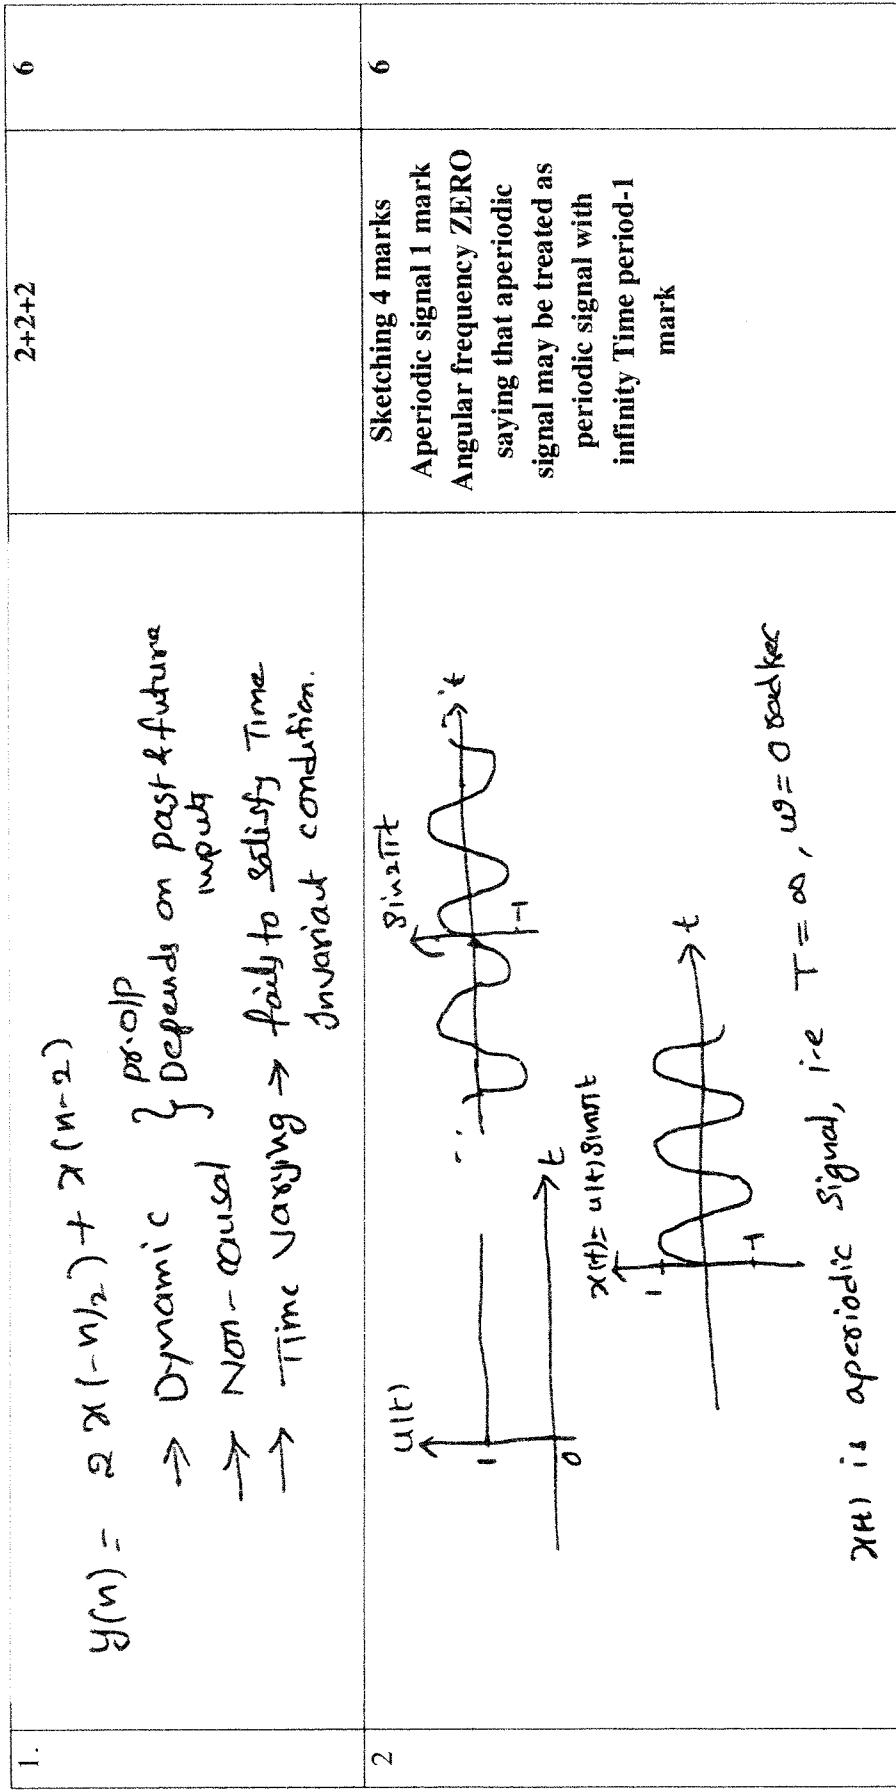 1.
y(n) = 2 x(-n/2) + x(n-2)
→ Dynamic } pr. o/p
→ Non-causal } Depends on past & future inputs
→ Time varying → fails to satisfy Time
Invariant condition.
2+2+2
6
2
u(t)
1
0
t
sin2πt
-1
t
x(t) = u(t) sin2πt
1
-1
t
x(t) is aperiodic signal, i.e T = ∞, ω = 0 rad/sec
Sketching 4 marks
Aperiodic signal 1 mark
Angular frequency ZERO
saying that aperiodic
signal may be treated as
periodic signal with
infinity Time period-1
mark
6